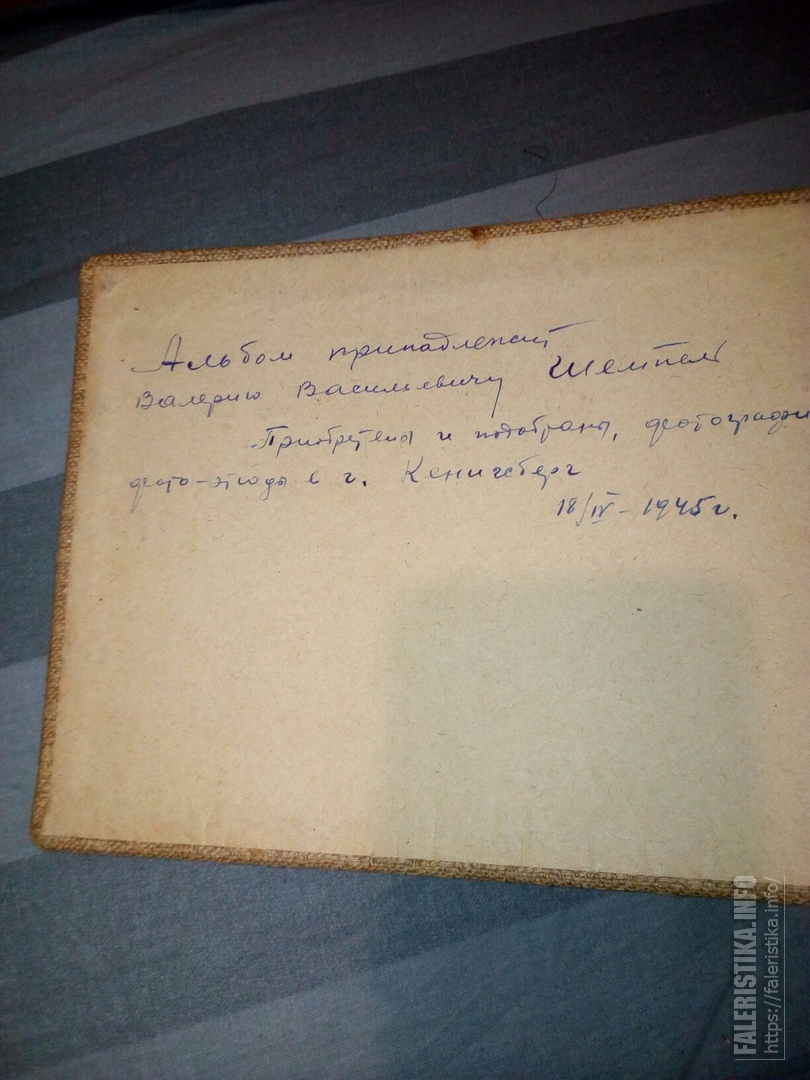 Альбом принадлежит
Валерию Васильевичу Шемпель
Приобретены и подобраны, фотографи
фото-этюды в г. Кенигсберг
18/IV - 1945 г.
FALERISTIKA.INFO
https://faleristika.info/